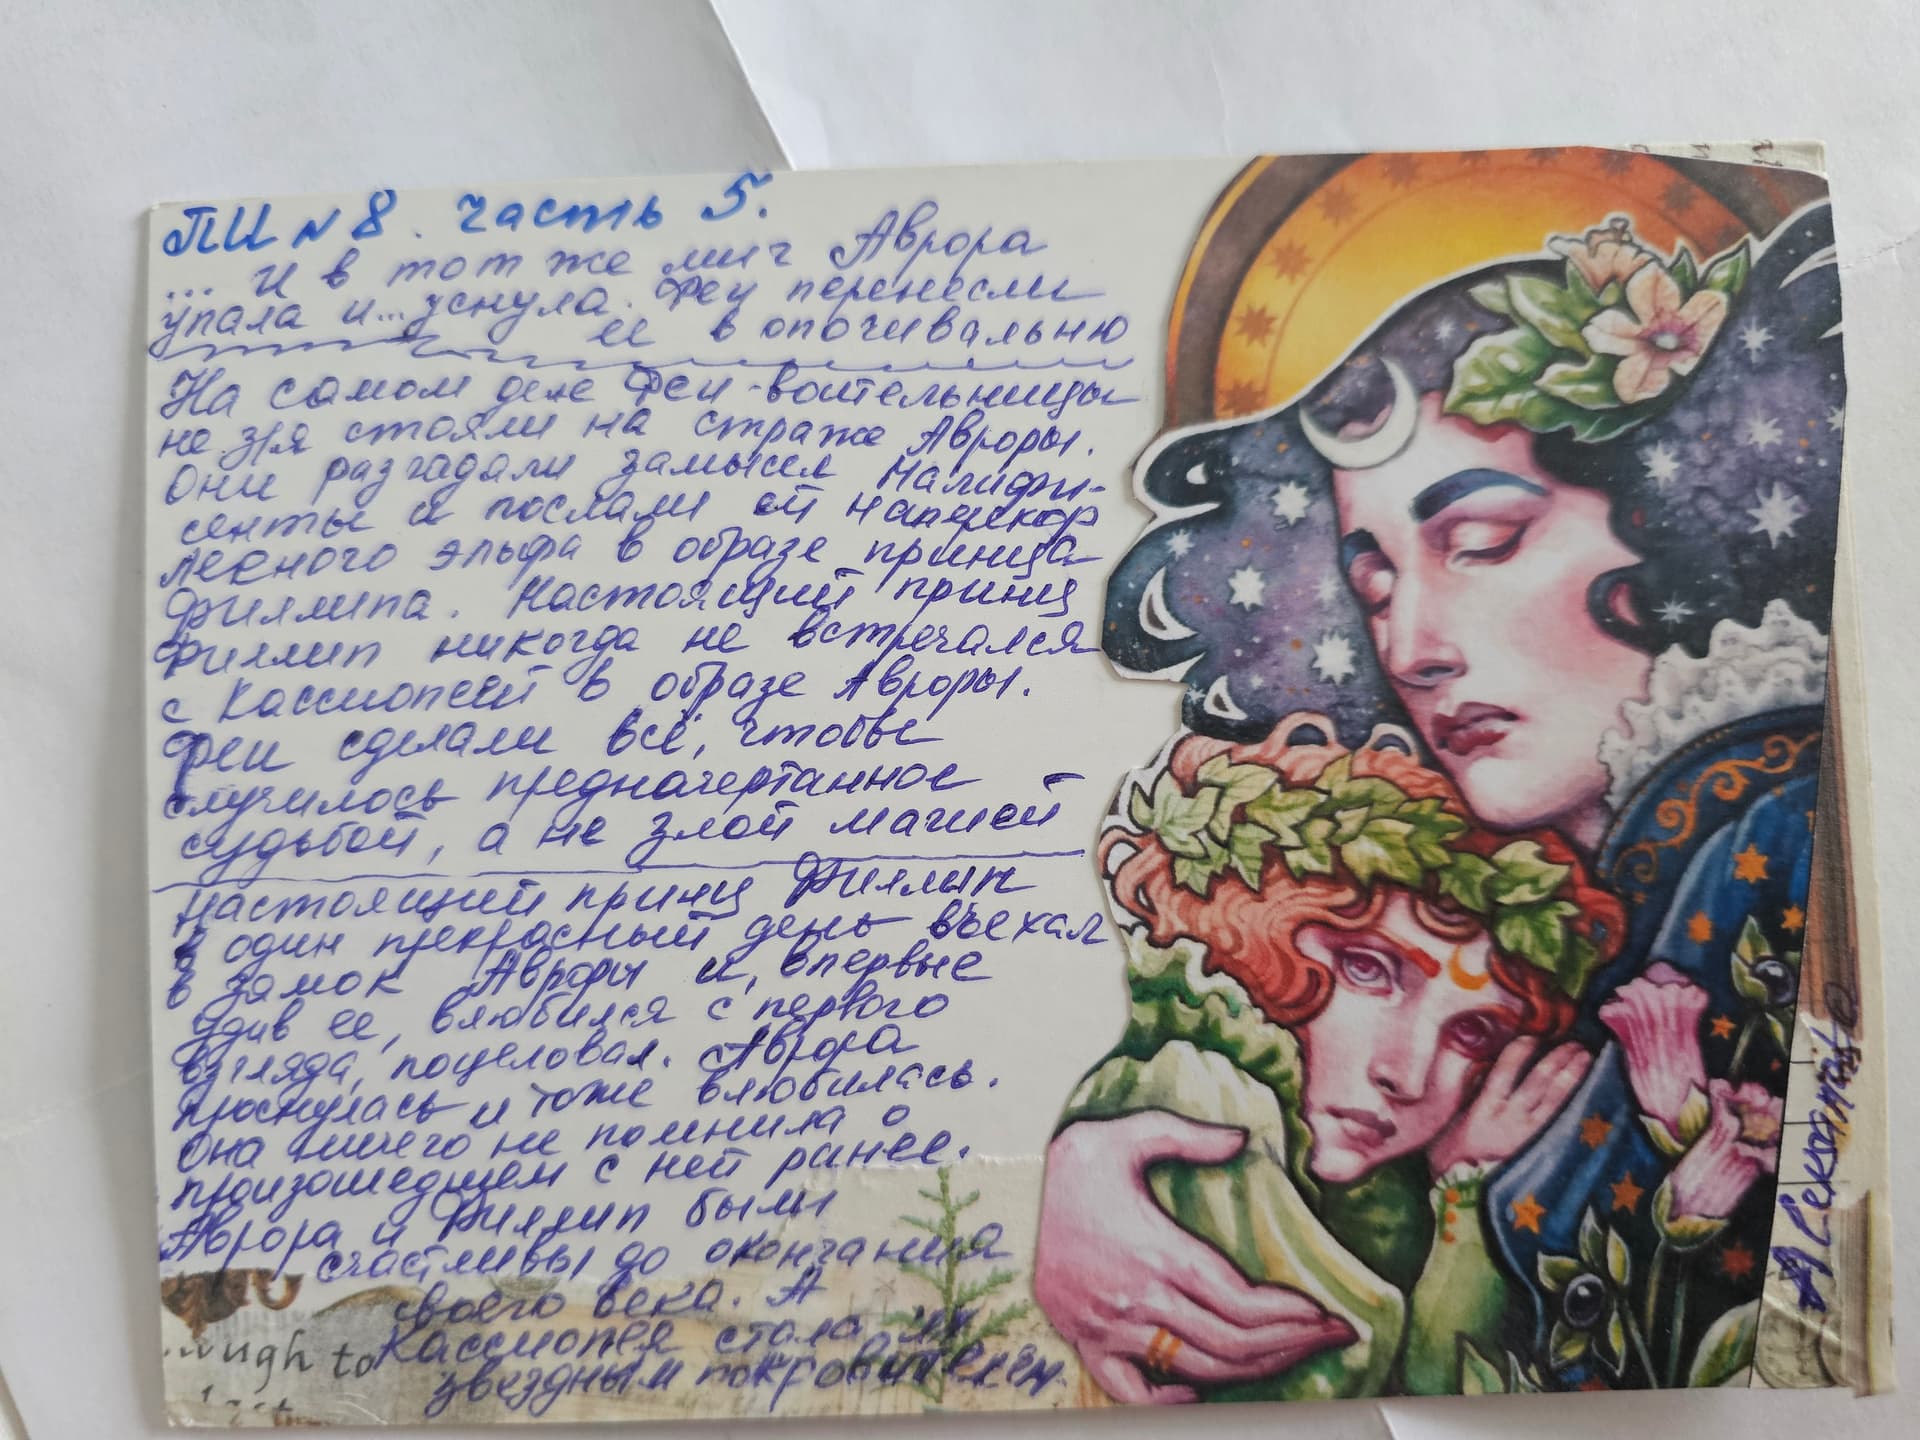 ПИ № 8. часть 5.
... И в тот же миг Аврора
упала и... уснула. Феи перенесли
ее в опочивальню
На самом деле Феи-воительницы
не зря стояли на страже Авроры.
Они разгадали замысел Малифи-
сенты и послали ей наперекор
лесного эльфа в образе принца
Филлипа. Настоящий принц
Филлип никогда не встречался
с Кассиопеей в образе Авроры.
Феи сделали всё, чтобы
случилось предначертанное
судьбой, а не злой магией
Настоящий принц Филлип
в один прекрасный день въехал
в замок Авроры и, впервые
удив ее, влюбился с первого
взгляда, поцеловал. Аврора
проснулась и тоже влюбилась.
Она ничего не помнила о
произошедшем с ней ранее.
Аврора и Филлип были
счастливы до окончания
своего века. А
Кассиопея стала их
звездным покровителем.
ough to